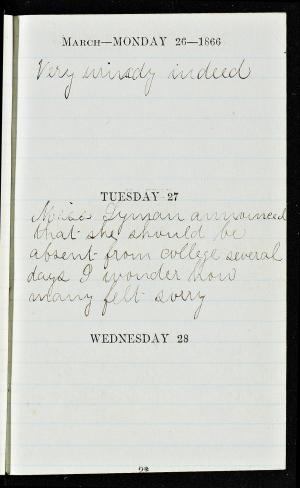 March—MONDAY 26—1866
Very windy indeed
TUESDAY 27
Miss Lyman announced
that she should be
absent from college several
days I wonder how
many felt sorry
WEDNESDAY 28